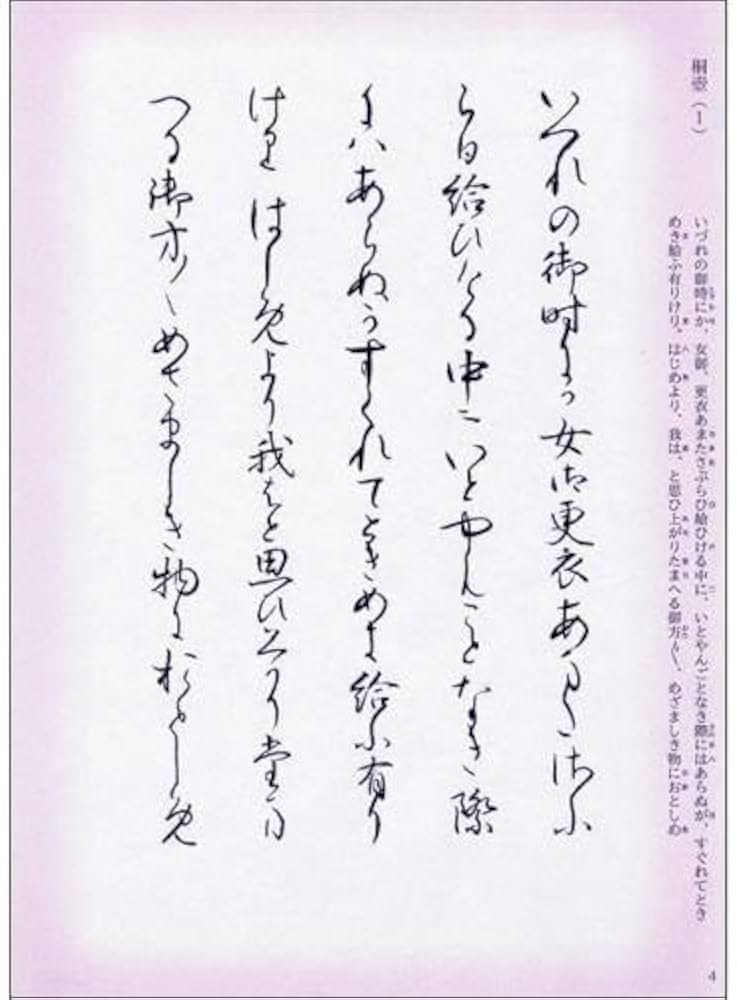 桐壺（1）
いづれの御時にか、女御、更衣あまたさぶらひ給ひける中に、いとやんごとなき際にはあらぬが、すぐれてとき
めき給ふ有りけり。はじめより、我は、と思ひ上がりたまへる御方〳〵、めざましき物におとしめ
いつれの御時にか女御更衣あまたさふ
らひ給ひける中にいとやんことなき際
にはあらぬかすくれてときめき給ふ有り
けりはしめより我はと思ひあかりたま
へる御方〳〵めさましき物におとしめ
4